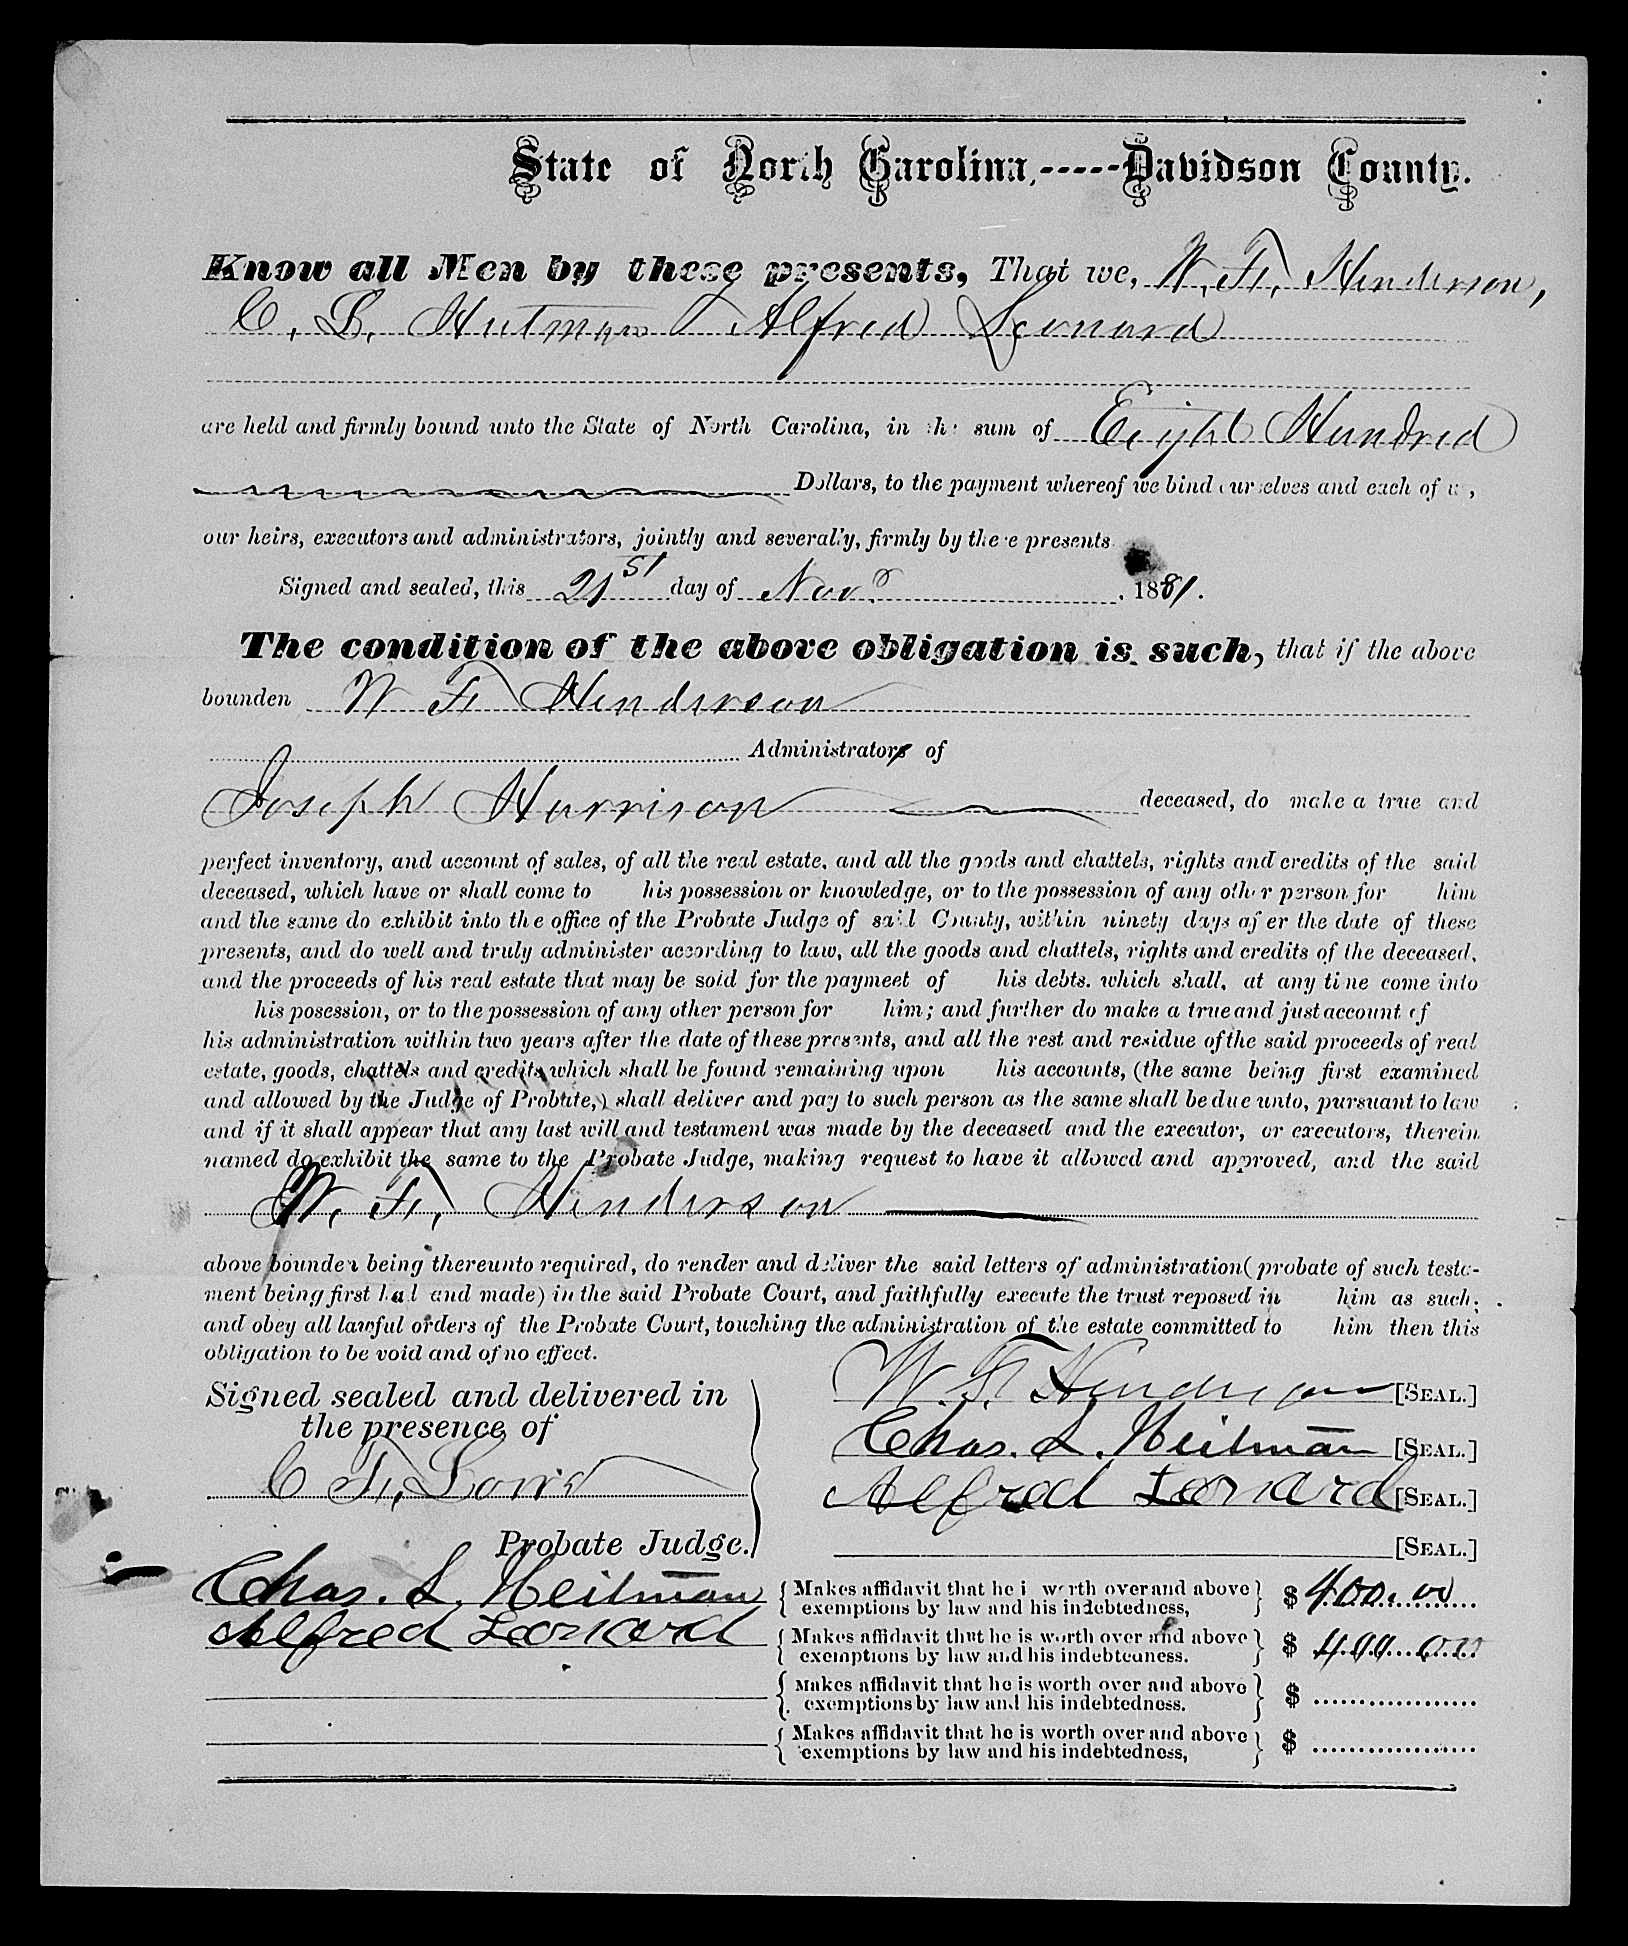 State of North Carolina,-----Davidson County.
Know all Men by these presents, That we, W. F. Henderson,
C. L. Heitman & Alfred Leonard
are held and firmly bound unto the State of North Carolina, in the sum of Eight Hundred
Dollars, to the payment whereof we bind ourselves and each of us,
our heirs, executors and administrators, jointly and severally, firmly by these presents
Signed and sealed, this 21st day of Novr. , 1881.
The condition of the above obligation is such, that if the above
bounden W F. Henderson
Administrators of
Joseph Harrison deceased, do make a true and
perfect inventory, and account of sales, of all the real estate, and all the goods and chattels, rights and credits of the said
deceased, which have or shall come to his possession or knowledge, or to the possession of any other person for him
and the same do exhibit into the office of the Probate Judge of said County, within ninety days after the date of these
presents, and do well and truly administer according to law, all the goods and chattels, rights and credits of the deceased,
and the proceeds of his real estate that may be sold for the paymeet of his debts. which shall, at any time come into
his posession, or to the possession of any other person for him; and further do make a true and just account of
his administration within two years after the date of these presents, and all the rest and residue of the said proceeds of real
estate, goods, chattels and credits which shall be found remaining upon his accounts, (the same being first examined
and allowed by the Judge of Probate,) shall deliver and pay to such person as the same shall be due unto, pursuant to law
and if it shall appear that any last will and testament was made by the deceased and the executor, or executors, therein
named do exhibit the same to the Probate Judge, making request to have it allowed and approved, and the said
W. F. Henderson
above bounden being thereunto required, do render and deliver the said letters of administration (probate of such testa-
ment being first had and made) in the said Probate Court, and faithfully execute the trust reposed in him as such;
and obey all lawful orders of the Probate Court, touching the administration of the estate committed to him then this
obligation to be void and of no effect.
Signed sealed and delivered in
the presence of
C F. Lowe
Probate Judge.
W. F. Henderson [SEAL.]
Chas. L. Heitman [SEAL.]
Alfred Leonard [SEAL.]
[SEAL.]
Chas. L. Heitman { Makes affidavit that he is worth over and above exemptions by law and his indebtedness, } $ 400.00
Alfred Leonard { Makes affidavit that he is worth over and above exemptions by law and his indebtedness. } $ 400.00
{ Makes affidavit that he is worth over and above exemptions by law and his indebtedness. } $
{ Makes affidavit that he is worth over and above exemptions by law and his indebtedness, } $